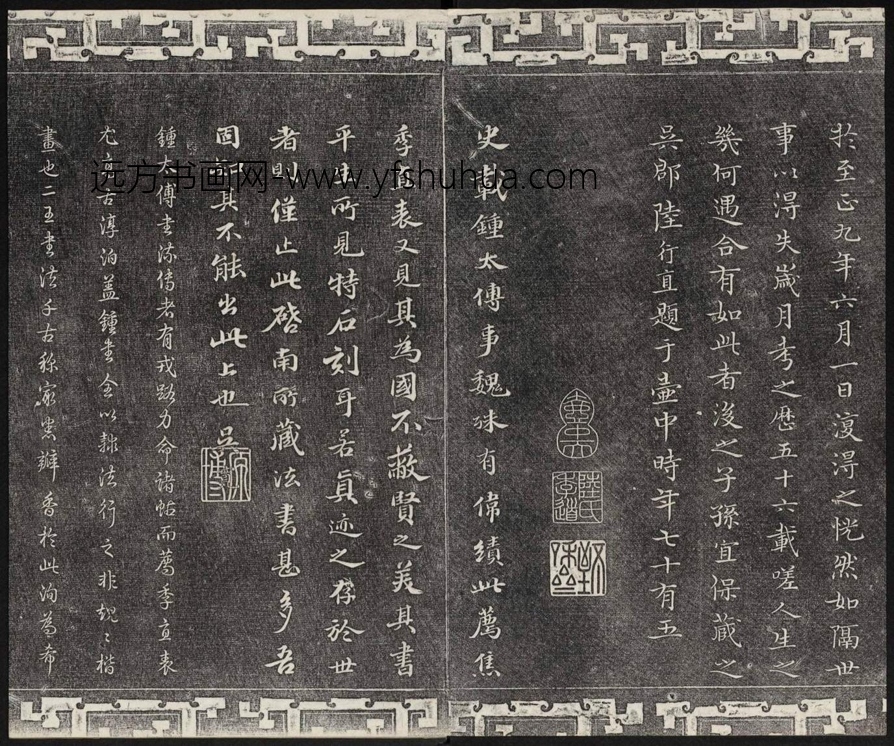 於至正九年六月一日復得之恍然如隔世
事以得失歲月考之歷五十六載嗟人生之
幾何遇合有如此者後之子孫宜保藏之
吳郡陸行直題于壺中時年七十有五
陸氏
史載鍾太傅事魏殊有偉績此薦焦
季直表又見其為國不蔽賢之美其書
平生所見特石刻耳若真迹之存於世
者則僅止此啓南所藏法書甚多吾
固知其不能出此上也吳寬
鍾太傅書流傳者有戎路力命諸帖而薦季直表
尤高古淳泊蓋鍾書全以隸法行之非規規楷
畫也二王書法千古稱家瓣香於此洵為希
远方书画网-www.yfshuhua.com